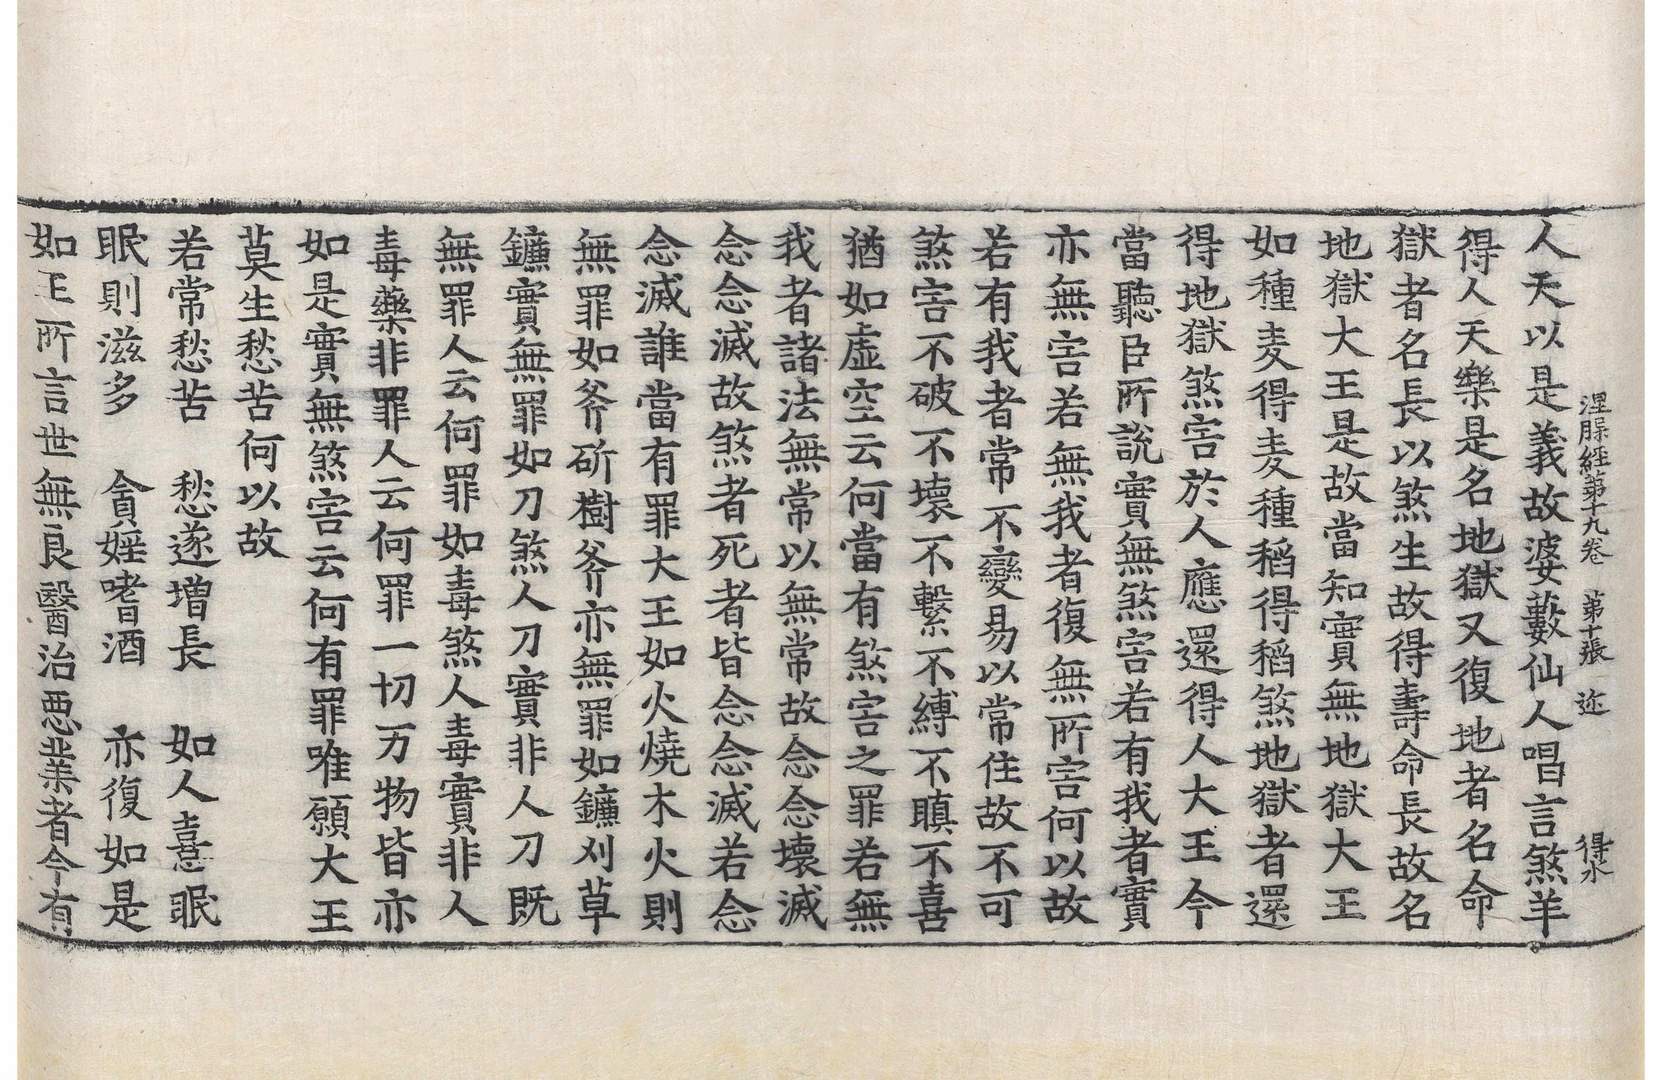 涅脲經第十九卷 第十張 迩 得水
人天以是義故婆藪仙人唱言煞羊
得人天樂是名地獄又復地者名命
獄者名長以煞生故得壽命長故名
地獄大王是故當知實無地獄大王
如種麦得麦種稻得稻煞地獄者還
得地獄煞害於人應還得人大王今
當聽臣所說實無煞害若有我者實
亦無害若無我者復無所害何以故
若有我者常不變易以常住故不可
煞害不破不壞不繫不縛不瞋不喜
猶如虛空云何當有煞害之罪若無
我者諸法無常以無常故念念壞滅
念念滅故煞者死者皆念念滅若念
念滅誰當有罪大王如火燒木火則
無罪如斧斫樹斧亦無罪如鐮刈草
鐮實無罪如刀煞人刀實非人刀既
無罪人云何罪如毒煞人毒實非人
毒藥非罪人云何罪一切万物皆亦
如是實無煞害云何有罪唯願大王
莫生愁苦何以故
若常愁苦 愁遂增長 如人憙眠
眠則滋多 貪婬嗜酒 亦復如是
如王所言世無良醫治悪業者今有